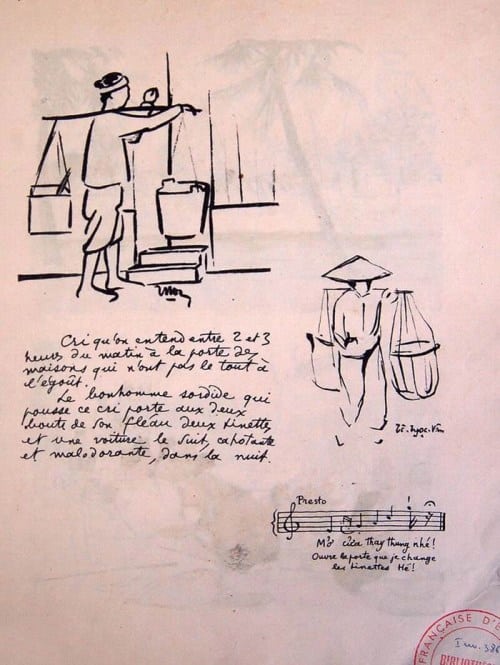 Cri qu'on entend entre 2 et 3
heures du matin à la porte des
maisons qui n'ont pas le tout à
l'égoût.
Le bonhomme sordide qui
pousse ce cri porte aux deux
bouts de son fléau deux tinettes
et une voiture le suit, cahotante
et malodorante, dans la nuit.
Tô-Ngọc-Vân
Presto
Mở cửa thay thùng nhé!
Ouvre la porte que je change
les tinettes Hé!
FRANÇAISE D'E
Inv. 38
BIBLIOT